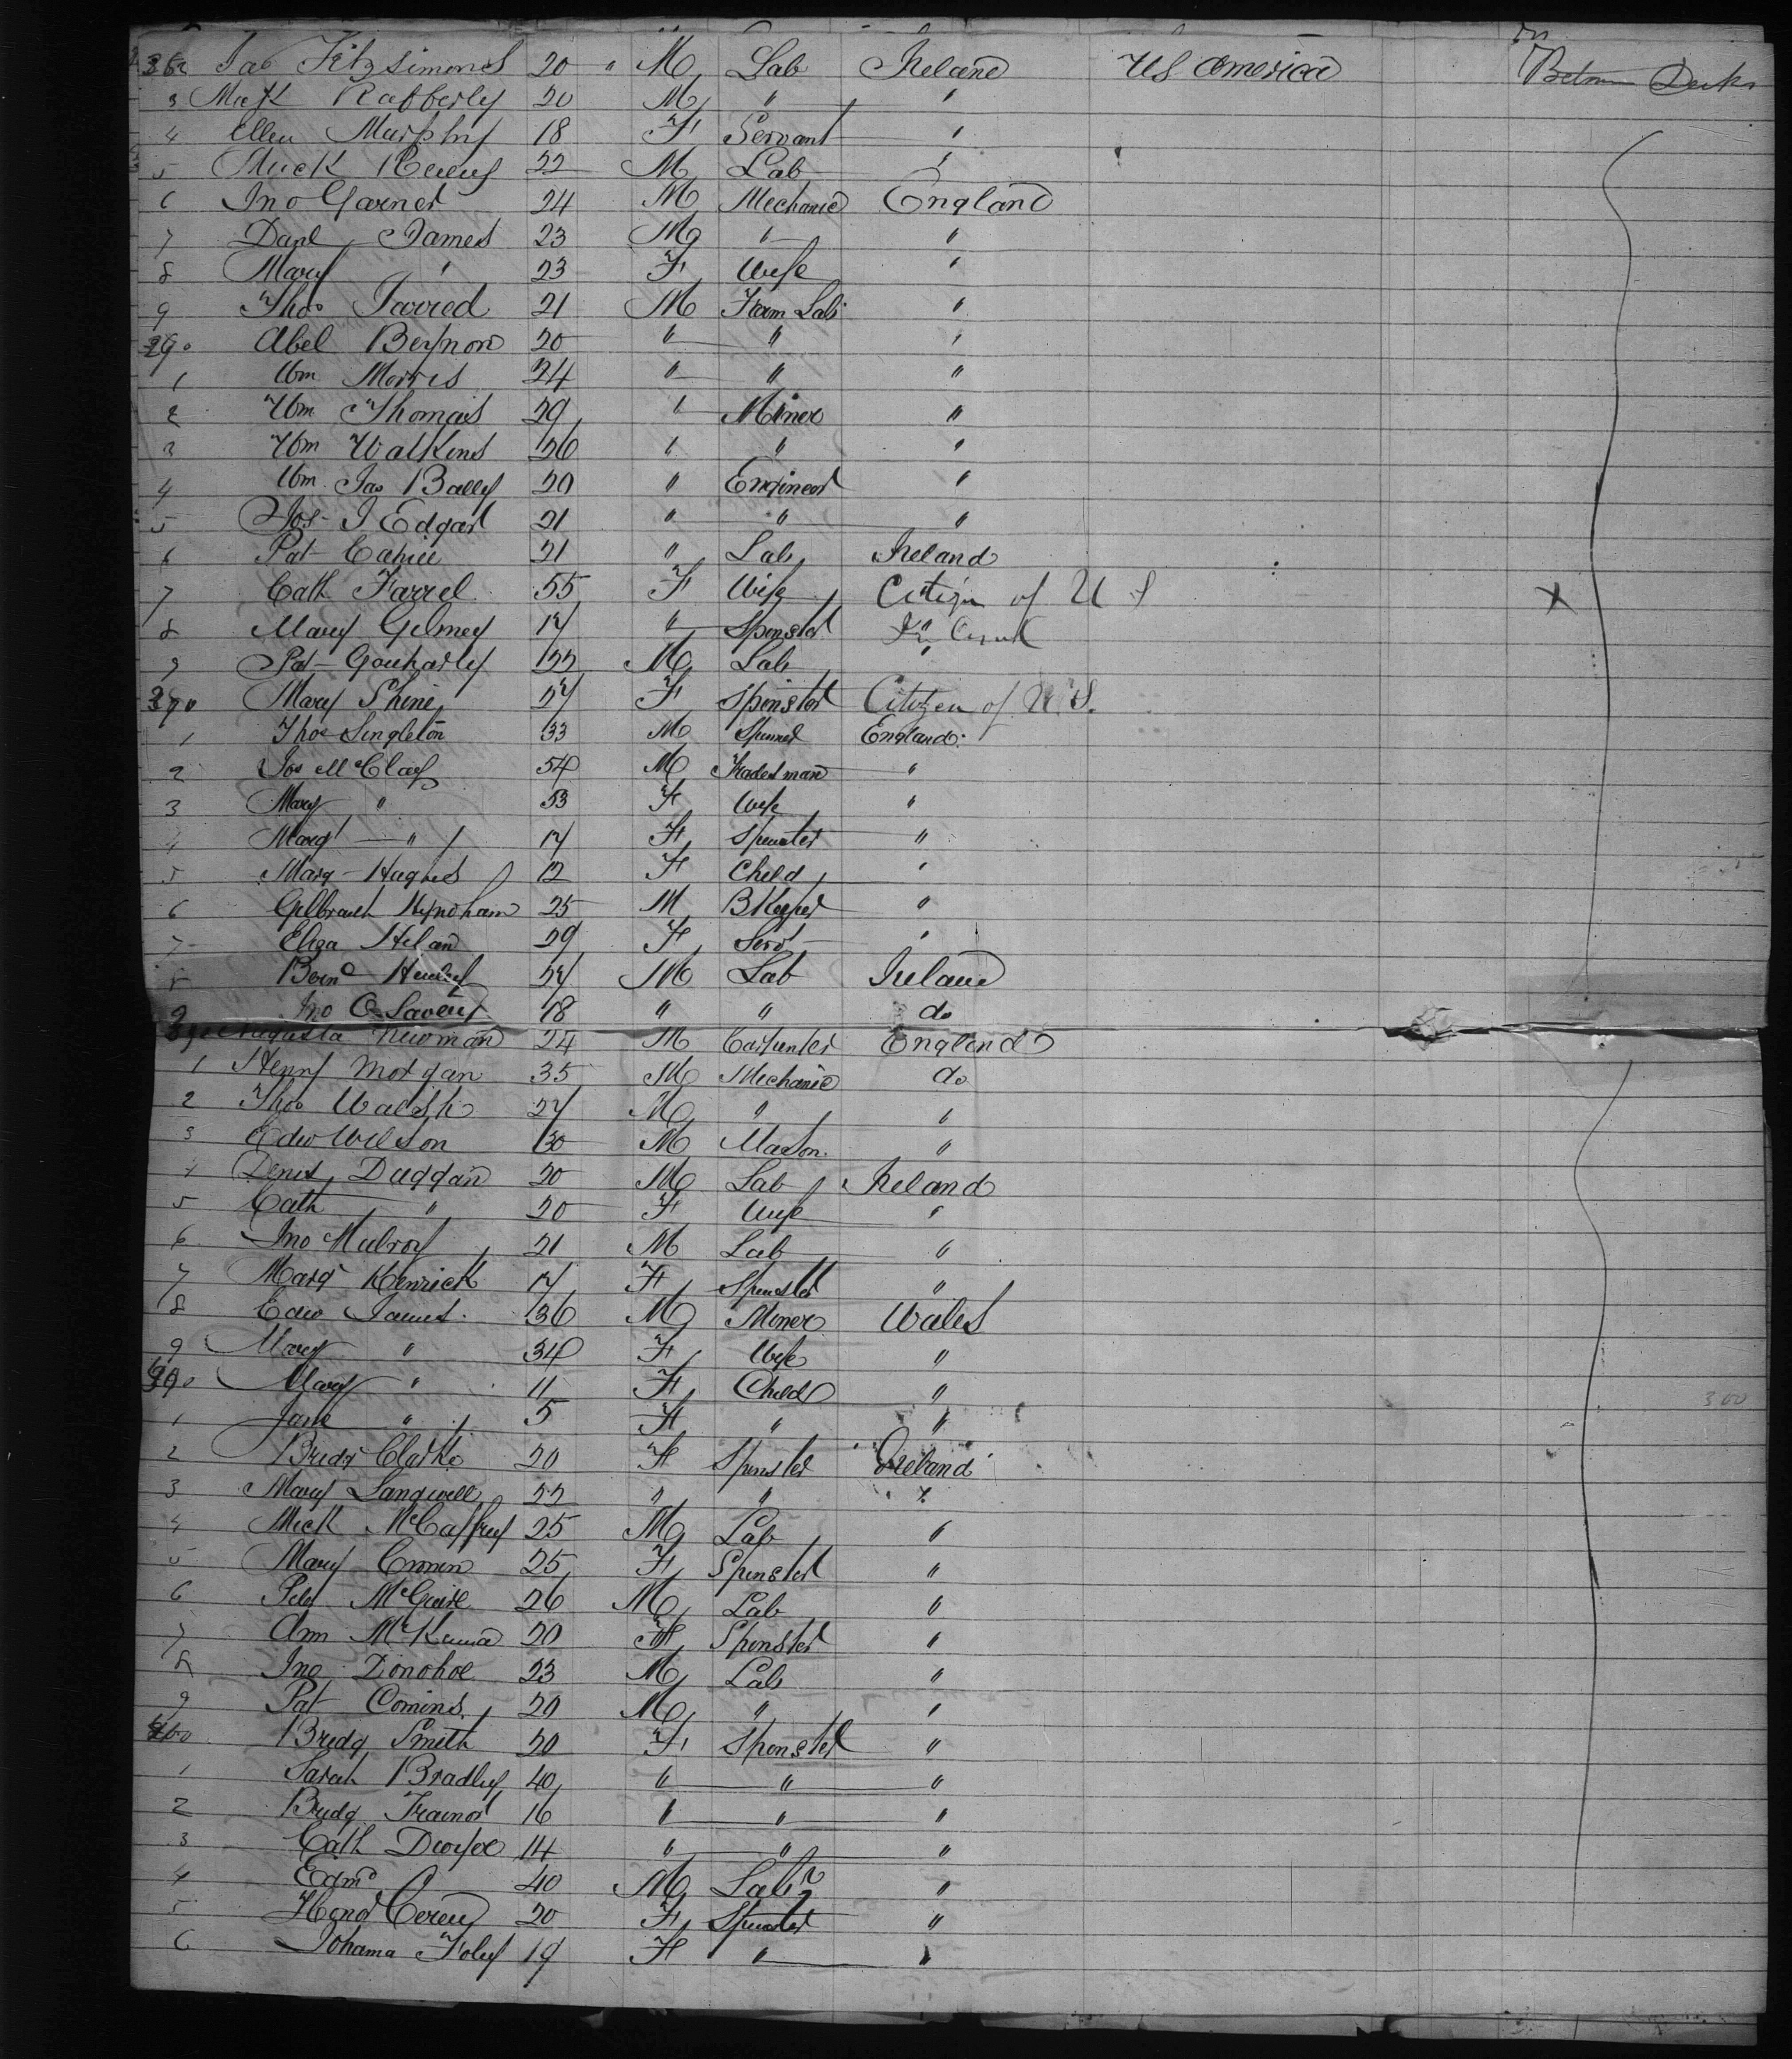 Jas Fitzsimons 20 " M Lab Ireland US America Between Decks
3 Rafferty 20 M " "
4 Ellen Murphy 18 F Servant "
5 Mick 22 M Lab "
6 Jno Garner 24 M Mechanic England
7 Danl James 23 M " "
8 Mary " 23 F Wife "
9 Thos Jarred 21 M Farm Lab "
Abel Beynon 20 " " "
1 Wm Morris 24 " " "
2 Wm Thomas 29 " Miner "
3 Wm Watkins 26 " " "
4 Wm Jas Bally 20 " Engineer "
5 Jos J Edgar 21 " " "
6 Pat Cahill 21 " Lab Ireland
7 Cath Farrel 55 F Wife Citizen of U S X
8 Mary Gilmey 17 " Spinster
9 Pat 22 M Lab "
Mary Shine 27 F Spinster Citizen of U.S.
1 Thos Singleton 33 M Spinner England
2 Jos McClay 54 M Tradesman "
3 Mary " 53 F Wife "
4 Margt " 17 F Spinster "
5 Marg Hughes 12 F Child "
6 Gilbraith Wyndham 25 M BKeeper "
7 Eliza Hilan 29 F Servt "
8 Bernd 27 M Lab Ireland
9 Jno 18 " " do
Augusta Newman 24 M Carpenter England
1 Henry Morgan 35 M Mechanic do
2 Thos Walsh 27 M " "
3 Edw Wilson 30 M Mason "
4 Denis Duggan 20 M Lab Ireland
5 Cath " 20 F Wife "
6 Jno Mulroy 21 M Lab "
7 Margt Kenrick 17 F Spinster "
8 Edw James 36 M Miner Wales
9 Mary " 34 F Wife "
Mary " 11 F Child "
1 Jane " 5 F " " 300
2 Bridgt Clarke 20 F Spinster Ireland
3 Mary Langwell 22 " " "
4 Mick McCaffrey 25 M Lab "
5 Mary Cronin 25 F Spinster "
6 Peter McGuire 26 M Lab "
7 Ann McKenna 20 F Spinster "
8 Jno Donohoe 23 M Lab "
9 Pat Comins 20 M " "
Bridg Smith 20 F Spinster "
1 Sarah Bradley 40 " " "
2 Bridg Trainor 16 " " "
3 Cath Dwyer 14 " " "
4 Edmd " 40 M Labr "
5 Honor 20 F Spinster "
6 Johanna Foley 19 F " "